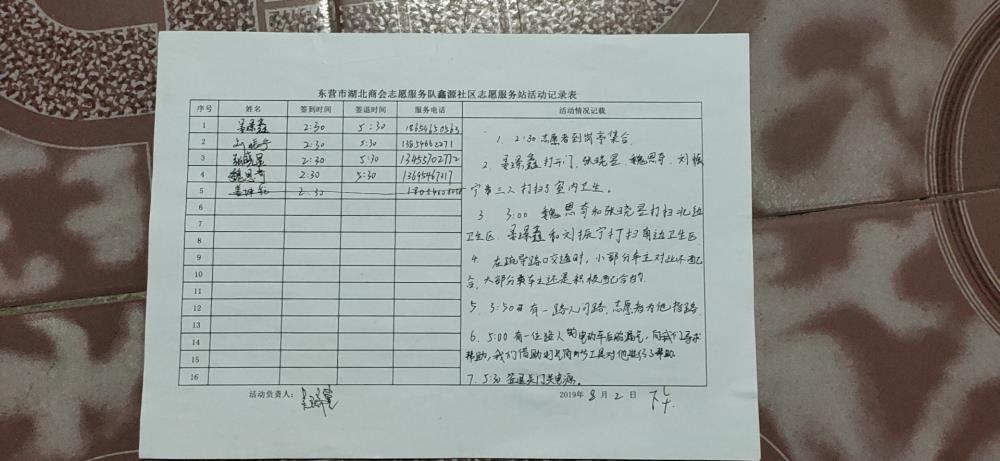 东营市湖北商会志愿服务队鑫源社区志愿服务站活动记录表
序号 姓名 签到时间 签退时间 服务电话 活动情况记载
1 2:30 5:30
2 2:30 5:30
3 2:30 5:30 13455702772
4 魏思奇 2:30 5:30
5 2:30
6
7
8
9
10
11
12
13
14
15
16
1. 2:30志愿者到岗亭集合.
2. 打开门,张晓星、魏思奇、刘振
宁等三人打扫室内卫生。
3. 3:00 魏思奇和张晓星打扫北边
卫生区. 和刘振宁打扫南边卫生区.
4. 在疏导路口交通时,小部分车主对此不配
合,大部分车主还是积极配合的.
5. 3:50 有一路人问路,志愿者为他指路.
6. 5:00 有一位路人的电动车后胎漏气,向我们寻求
帮助,我们借助打气筒 工具对他进行了帮助.
7. 5:30 签退关门关电源。
活动负责人: 2019年 8 月 2 日 下午